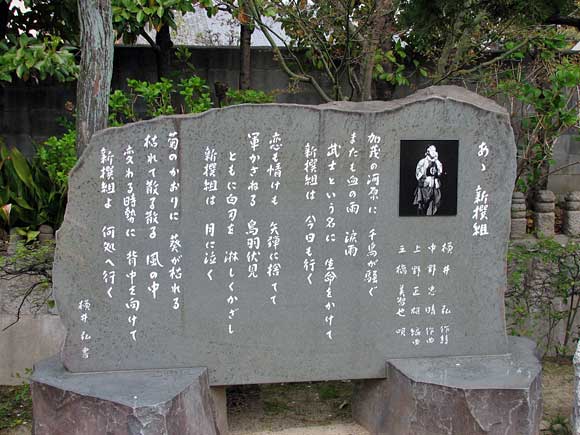 あゝ 新撰組
横井 弘 作詩
中野忠晴 作曲
上野正雄 編曲
三橋美智也 唄
加茂の河原に 千鳥が騒ぐ
またも血の雨 涙雨
武士という名に 生命をかけて
新撰組は 今日も行く
恋も情けも 矢弾に捨てて
軍かさねる 鳥羽伏見
ともに白刃を 淋しくかざし
新撰組は 月に泣く
菊のかおりに 葵が枯れる
枯れて散る散る 風の中
変わる時勢に 背中を向けて
新撰組よ 何処へ行く
横井弘書